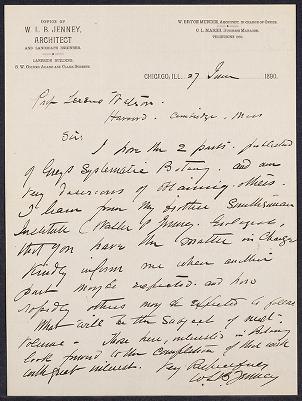 OFFICE OF
W. L. B. JENNEY,
ARCHITECT
AND LANDSCAPE ENGINEER.
LAKESIDE BUILDING,
S. W. CORNER ADAMS AND CLARK STREETS.
W. BRYCE MUNDIE, ARCHITECT, IN CHARGE OF OFFICE.
BUSINESS MANAGER.
TELEPHONE
CHICAGO, ILL. 27 June 1890.
Prof Sereno Watson
Harvard. Cambridge. Mass
Sir.
I have the 2 parts. published
of Grays Systematic Botany. and am
very desirous of obtaining others.
I learn from my brother Smithsonian
Institute (Walter P Jenney. Geologist,
that you have the matter in Charge
Kindly inform me when another
part may be expected. and how
rapidly others may be expected to follow
What will be the subject of next
Volume - Those here, interested in Botany
look forward to the Completion of that work
with great interest. Very Respectfully
W L B Jenney